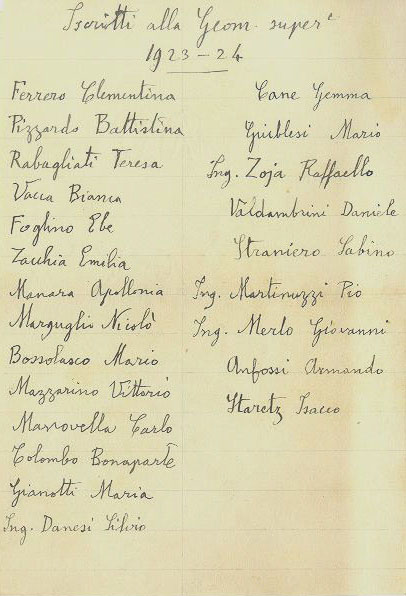 Iscritti alla Geom. superᵉ
1923-24
Ferrero Clementina
Pizzardo Battistina
Rabagliati Teresa
Vacca Bianca
Foglino Ebe
Zacchia Emilia
Manara Apollonia
Marguglio Nicolò
Bossolasco Mario
Mazzarino Vittorio
Manovella Carlo
Colombo Bonaparte
Gianotti Maria
Ing. Danesi Silvio
Cane Gemma
Mario
Ing. Zoja Raffaello
Valdambrini Daniele
Straniero Sabino
Ing. Martinuzzi Pio
Ing. Merlo Giovanni
Anfossi Armando
Staretz Isacco